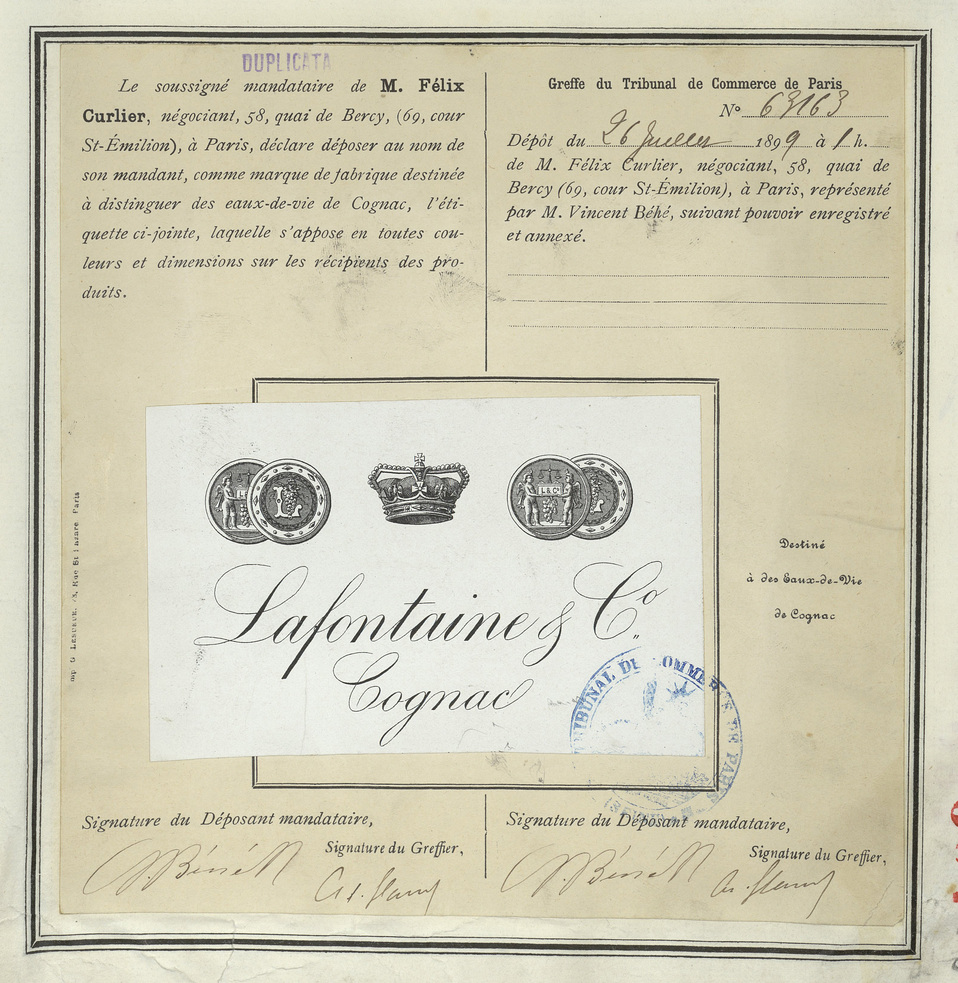 DUPLICATA
Le soussigné mandataire de M. Félix
Curlier, négociant, 58, quai de Bercy, (69, cour
St-Émilion), à Paris, déclare déposer au nom de
son mandant, comme marque de fabrique destinée
à distinguer des eaux-de-vie de Cognac, l'éti-
quette ci-jointe, laquelle s'appose en toutes cou-
leurs et dimensions sur les récipients des pro-
duits.
Greffe du Tribunal de Commerce de Paris
N° 63163
Dépôt du 26 Juillet 1899 à 1 h.
de M. Félix Curlier, négociant, 58, quai de
Bercy (69, cour St-Émilion), à Paris, représenté
par M. Vincent Béhé, suivant pouvoir enregistré
et annexé.
L
L & Co
Lafontaine & Co
Cognac
Destiné
à des Eaux-de-Vie
de Cognac
TRIBUNAL DE COMMERCE DE PARIS
Rue St Lazare Paris
Signature du Déposant mandataire,
Signature du Greffier,
Signature du Déposant mandataire,
Signature du Greffier,